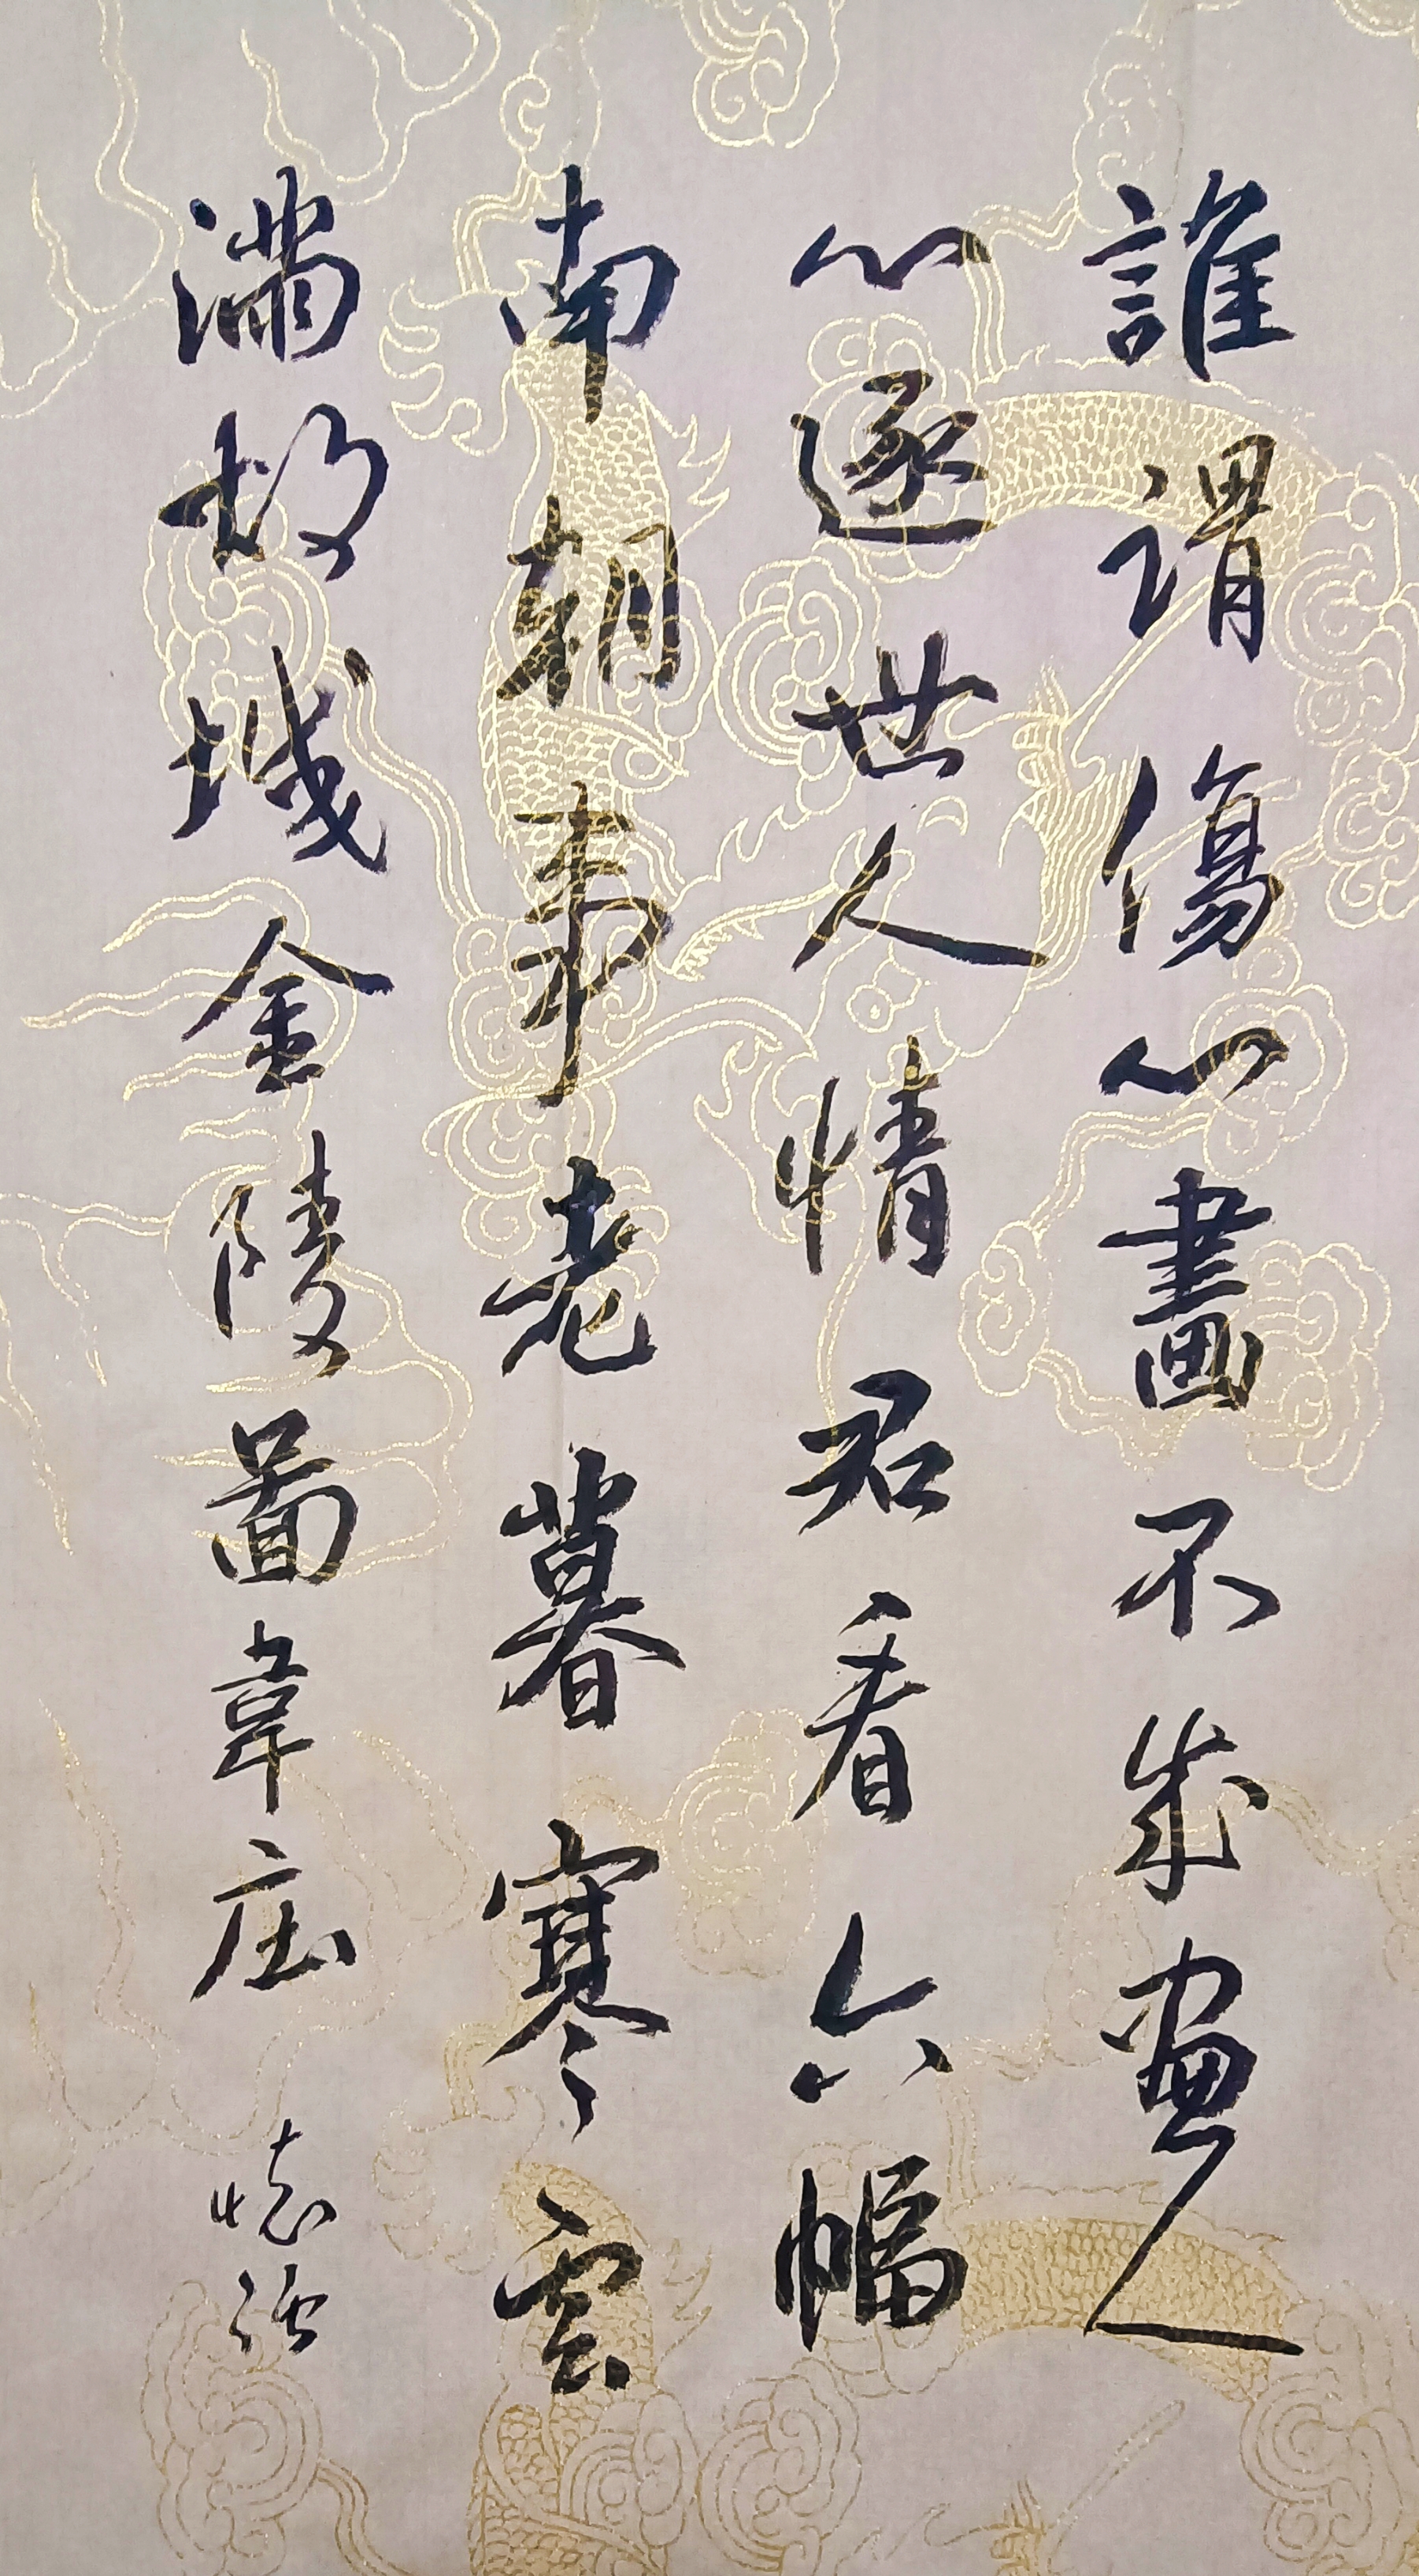 誰謂傷心畫不成畫人
心逐世人情君看六幅
南朝事老暮寒雲
滿故城金陵圖韋庄